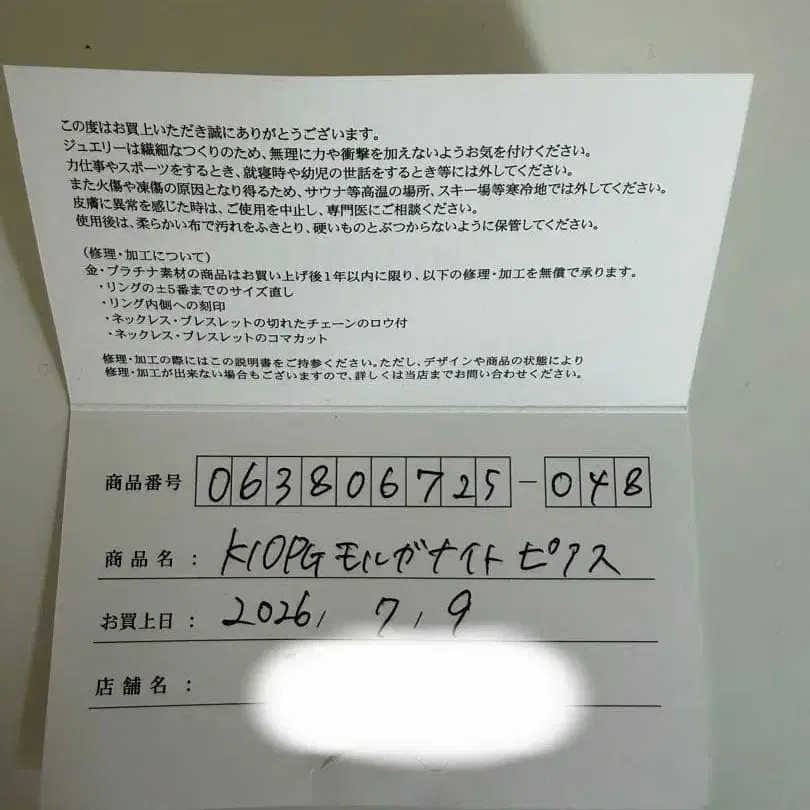 この度はお買上いただき誠にありがとうございます。
ジュエリーは繊細なつくりのため、無理に力や衝撃を加えないようお気を付けください。
力仕事やスポーツをするとき、就寝時や幼児の世話をするとき等には外してください。
また火傷や凍傷の原因となり得るため、サウナ等高温の場所、スキー場等寒冷地では外してください。
皮膚に異常を感じた時は、ご使用を中止し、専門医にご相談ください。
使用後は、柔らかい布で汚れをふきとり、硬いものとぶつからないように保管してください。
(修理・加工について)
金・プラチナ素材の商品はお買い上げ後1年以内に限り、以下の修理・加工を無償で承ります。
・リングの±5番までのサイズ直し
・リング内側への刻印
・ネックレス・ブレスレットの切れたチェーンのロウ付
・ネックレス・ブレスレットのコマカット
修理・加工の際にはこの説明書をご持参ください。ただし、デザインや商品の状態により
修理・加工が出来ない場合もございますので、詳しくは当店までお問い合わせください。
商品番号 063806725-048
商品名: K10PG モルガナイト ピアス
お買上日: 2026, 7, 9
店舗名: